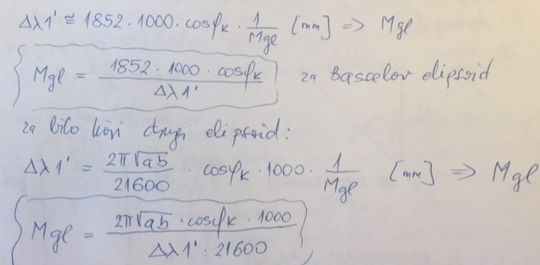 Δλ1' ≅ 1852 · 1000 · cosφ_K · 1/Mgl [mm] => Mgl
Mgl = 1852 · 1000 · cosφ_K / Δλ1' za Basselov elipsoid
za bilo koji drugi elipsoid:
Δλ1' = 2π√ab / 21600 · cosφ_K · 1000 · 1/Mgl [mm] => Mgl
Mgl = 2π√ab · cosφ_K · 1000 / Δλ1' · 21600